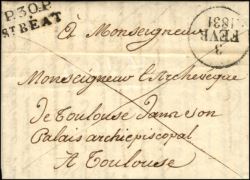 P.30.P
ST BÉAT
3
FEVR
1831
à Monseigneur
Monseigneur L'archevêque
de Toulouse dans son
Palais archiepiscopal
A Toulouse